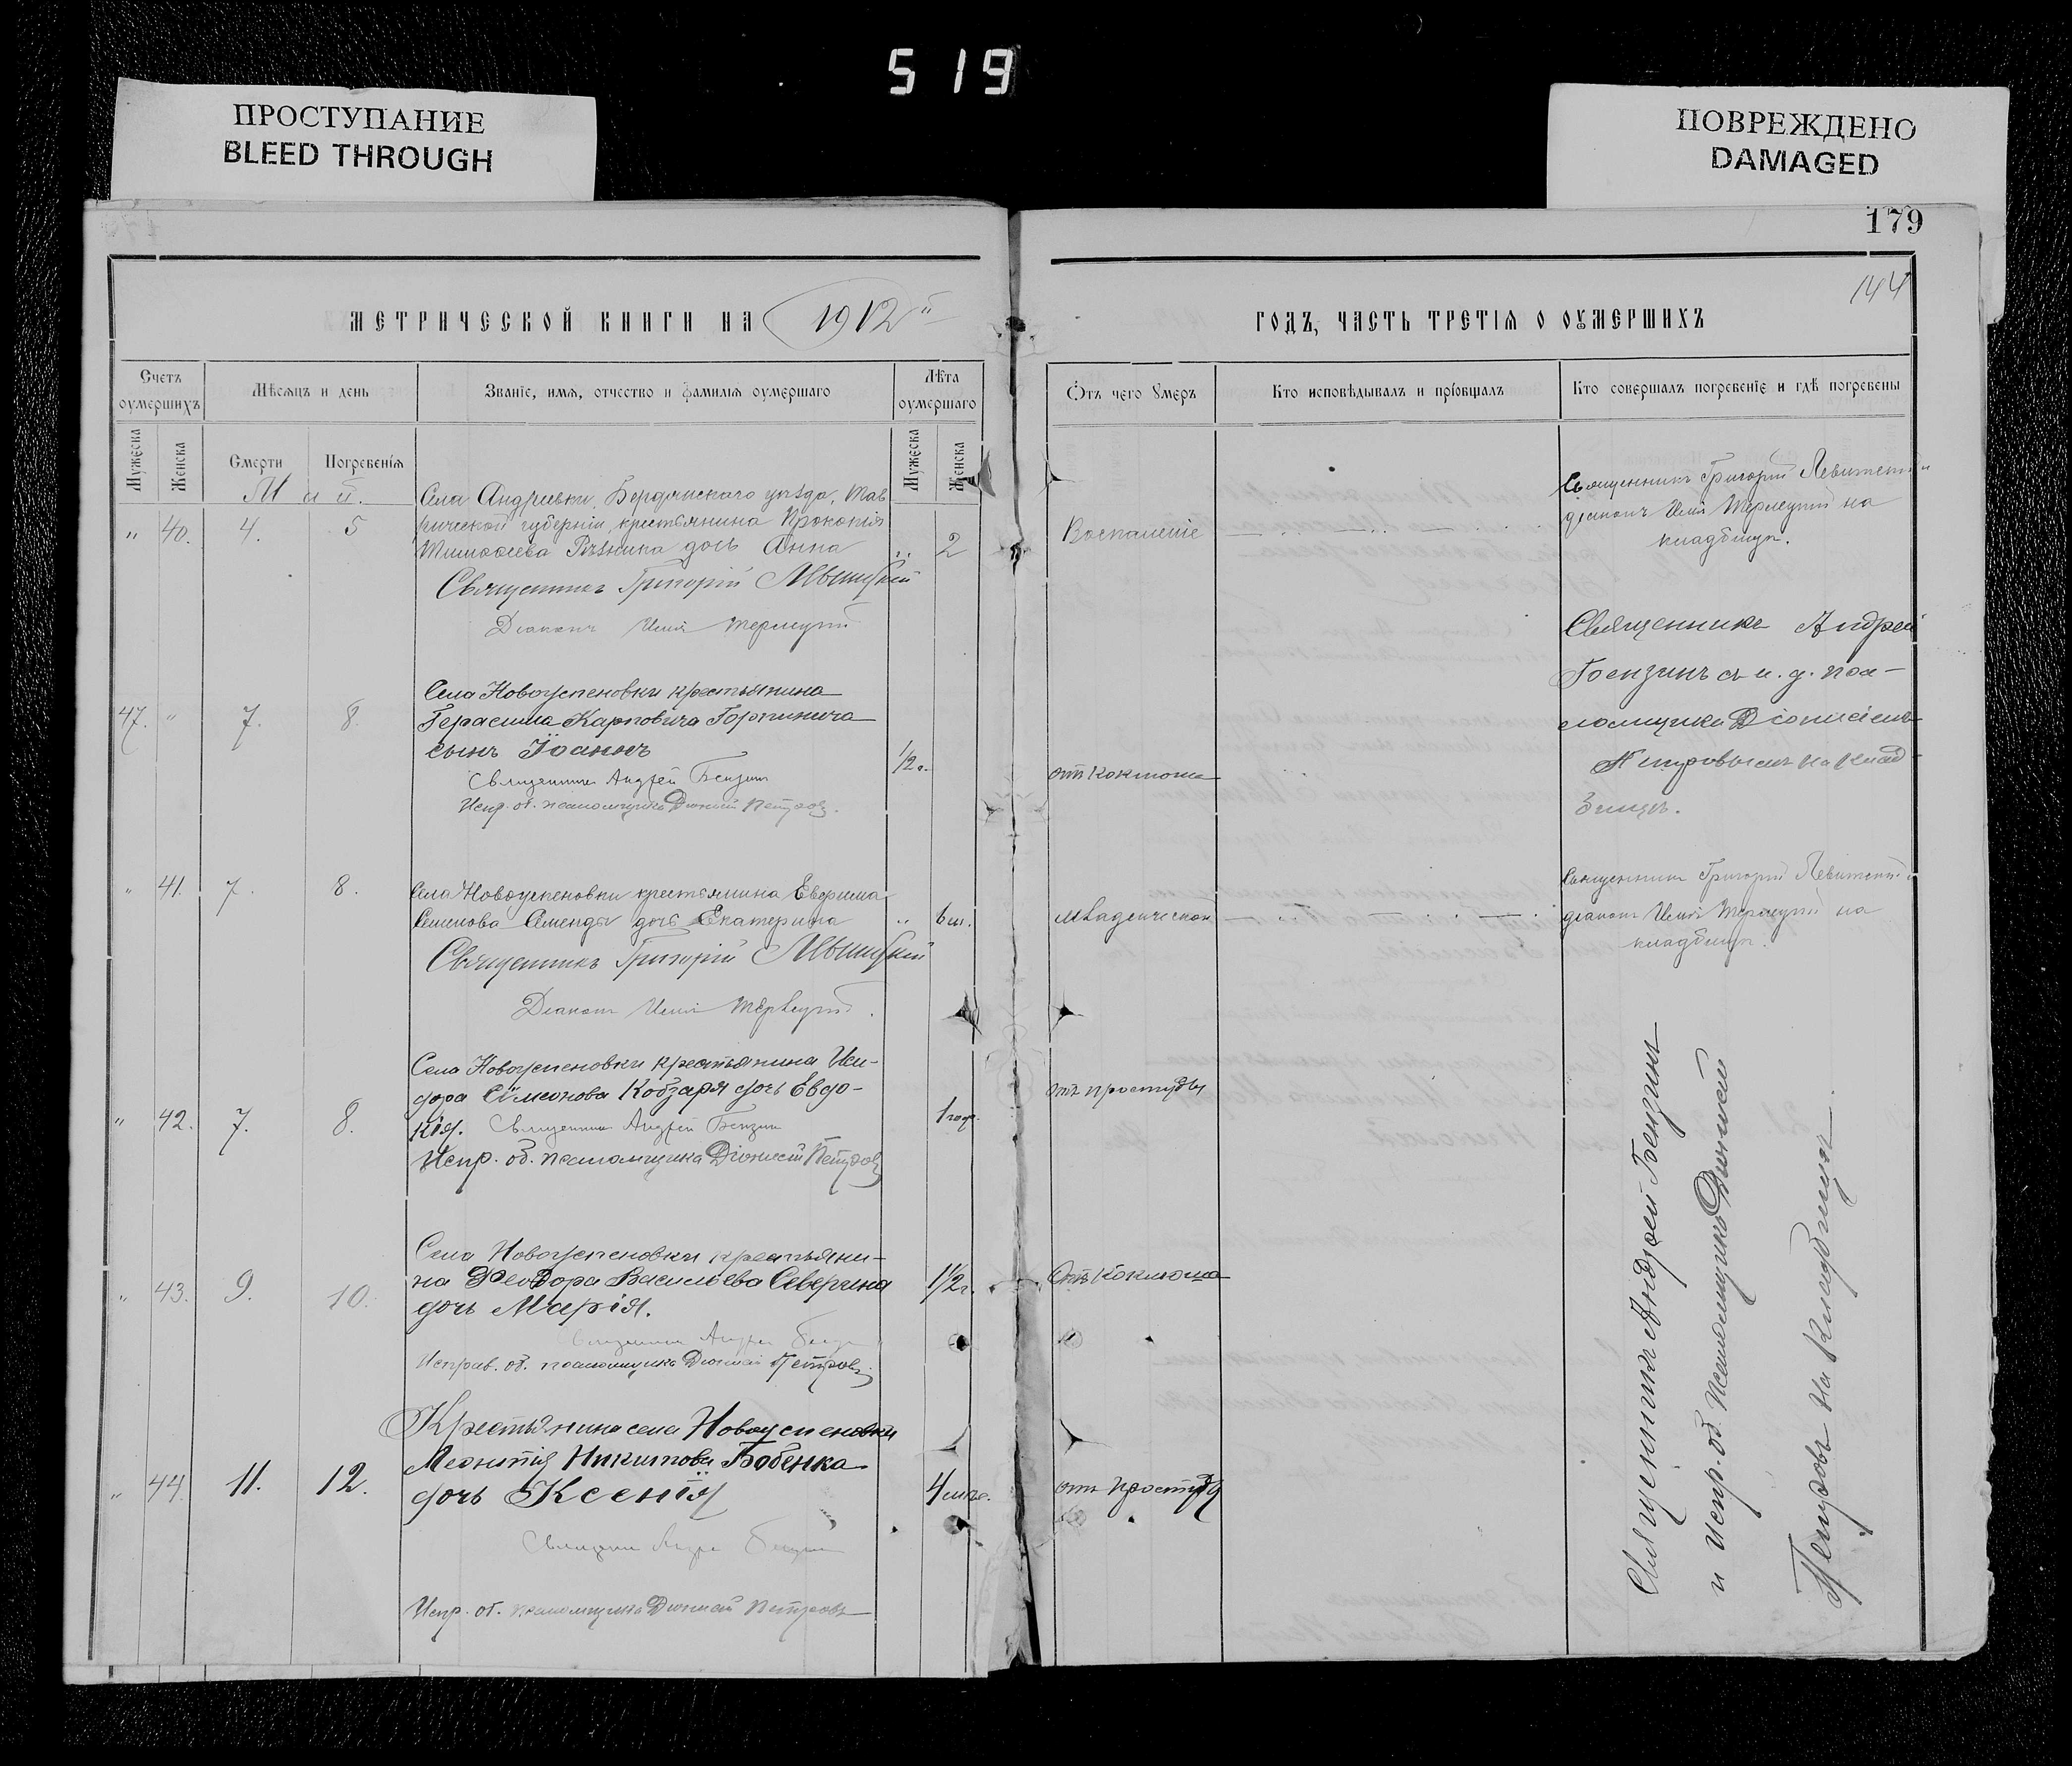 519
ПРОСТУПАНИЕ
BLEED THROUGH
ПОВРЕЖДЕНО
DAMAGED
179
144
МЕТРИЧЕСКОЙ КНИГИ НА 1912й
ГОДЪ, ЧАСТЬ ТРЕТІЯ О ОУМЕРШИХЪ
Счетъ оумершихъ
Мѣсяцъ и день
Званіе, имя, отчество и фамилія оумершаго
Лѣта оумершаго
Отъ чего оумеръ
Кто исповѣдывалъ и пріобщалъ
Кто совершалъ погребеніе и гдѣ погребены
Мужеска
Женска
Смерти
Погребенія
Мужеска
Женска
Май.
Села Андреевки, Бердянскаго уѣзда, Тав
рической губерніи крестьянина Прокопія
" 40. 4. 5
Тимоѳеева Рѣзника дочь Анна " 2
Воспаленіе
Священникъ Григорій
діаконъ Илія на
кладбищѣ.
Священникъ Григорій
Діаконъ Илія
Села Новоуспеновки крестьянина
47. " 7. 8.
Герасима Карповича Горпинича
сынъ Іоаннъ 1/2 г.
Священникъ Андрей Бензинъ
Испр. об. псаломщика Діонисій Петровъ.
от коклюша
Священникъ Андрей
Бензинъ съ и. д. пса-
ломщика Діонисіемъ
Петровымъ на клад-
бищѣ.
" 41. 7. 8.
Села Новоуспеновки крестьянина
Семенова дочь Екатерина " 6 м.
младенческой
Священникъ Григорій
діаконъ Илія на
кладбищѣ.
Священникъ Григорій
Діаконъ Илія
Села Новоуспеновки крестьянина Иси-
дора Сімеонова Кобзаря дочь Евдо-
" 42. 7. 8.
кія. Священникъ Андрей Бензинъ
1 годъ.
Испр. об. псаломщика Діонисій Петровъ
отъ простуды
Села Новоуспеновки крестьяни-
" 43. 9. 10.
на Ѳеодора Васильева Северина
дочь Марія.
1 1/2 г.
Отъ коклюша
Священникъ Андрей Бензинъ
Исправ. об. псаломщика Діонисій Петровъ.
Крестьянина села Новоуспеновки
Леонтія Никитова Бабенка
" 44. 11. 12.
дочь Ксенія
4 мѣс.
отъ простуды
Священникъ Андрей Бензинъ
Испр. об. псаломщика Діонисій Петровъ
Священникъ Андрей Бензинъ
и Испр. об. псаломщикъ Діонисій
Петровъ на кладбищѣ.